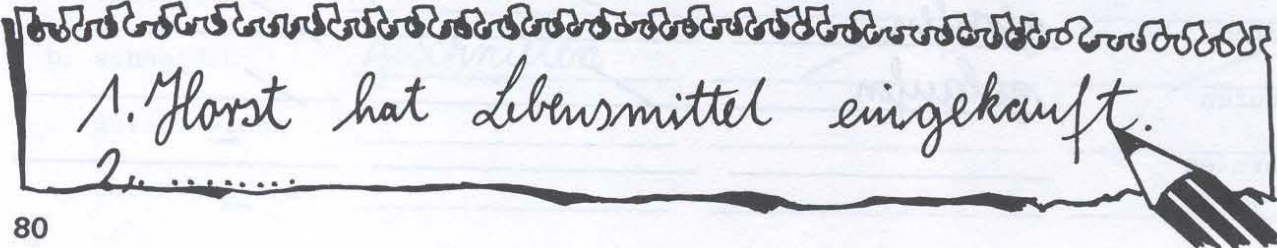 1. Horst hat Lebensmittel eingekauft.
2. ........
80